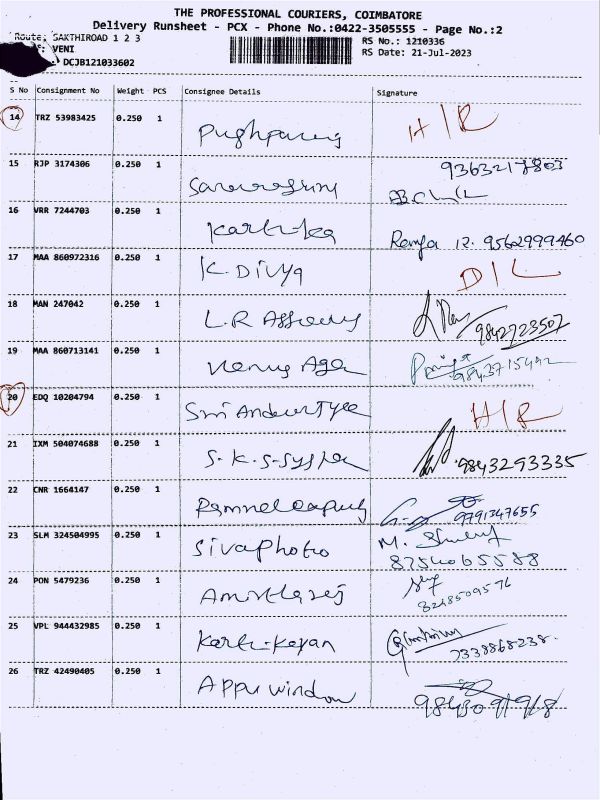 THE PROFESSIONAL COURIERS, COIMBATORE
Delivery Runsheet - PCX - Phone No.:0422-3505555 - Page No.:2
Route: SAKTHIROAD 1 2 3
RS No.: 1210336
: VENI
RS Date: 21-Jul-2023
: DCJB121033602
S No Consignment No Weight PCS Consignee Details Signature
14 TRZ 53983425 0.250 1 H/R
15 RJP 3174306 0.250 1 9363217803
16 VRR 7244703 0.250 1 Kartika Remya R. 9562999460
17 MAA 860972316 0.250 1 K. Divya D/L
18 MAN 247042 0.250 1 L.R 9842723507
19 MAA 860713141 0.250 1 Venus Age
20 EDQ 10204794 0.250 1 Sri H/R
21 IXM 504074688 0.250 1 S.K.S- 9843293335
22 CNR 1664147 0.250 1 9791347655
23 SLM 324504995 0.250 1 Sivaphoto M.
8754065588
24 PON 5479236 0.250 1 8248509576
25 VPL 944432985 0.250 1 Karti-Keyan 7338868238.
26 TRZ 42490405 0.250 1 Appu window